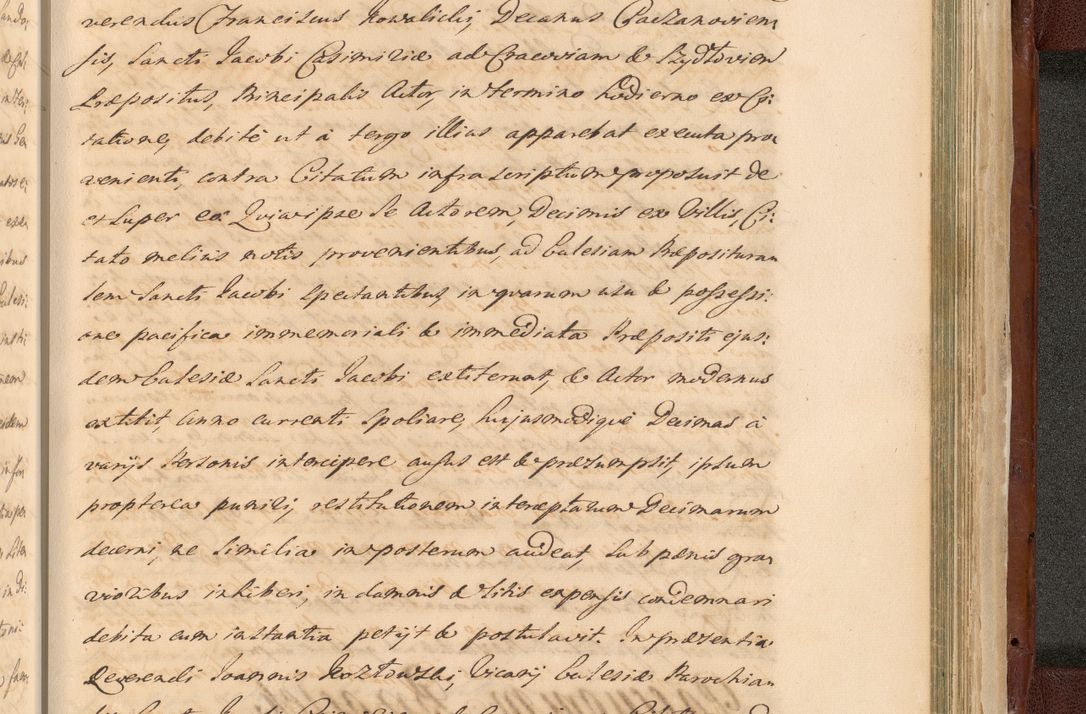 verendus Franciscus Kowalicki, Decanus Paczanovien
sis, Sancti Jacobi Casimiriæ ad Cracoviam & Szydłovien
Præpositus, Principalis Actor, in termino hodierno ex Ci:
tatione, debitè ut à tergo illius apparebat executa pro
venienti, contra Citatum infrascriptum proposuit de
et super eo Quia ipse se Actorem, Decimis ex Villis, Ci:
tato melius notis provenientibus, ad Ecclesiam Præpositura
lem Sancti Jacobi spectantibus, in quarum usu & possessi:
one pacifica immemoriali & immediata Præpositi ejus:
dem Ecclesiæ Sancti Jacobi extiterunt, & Actor modernus
extitit, Anno currenti spoliare, hujusmodiquè Decimas à
varijs Personis intercipere ausus est & præsumpsit, ipsum
propterea puniri, restitutionem interceptarum Decimarum
decerni, ne similia in posterum audeat, sub pænis gra
vioribus inhiberi, in damnis & litis expensis condemnari
debita cum instantia petijt & postulavit. In præsentia
Reverendi Joannis Kozłowski, Vicarij Ecclesiæ Parochia